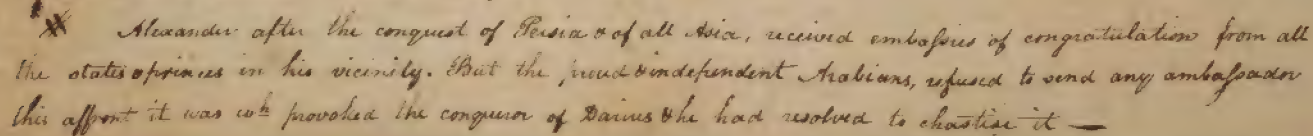 * Alexander after the conquest of Persia & of all Asia, received embassies of congratulation from all
the states & princes in his vicinity. But the proud & independent Arabians, refused to send any ambassador
this affront it was wh provoked the conqueror of Darius & he had resolved to chastise it —